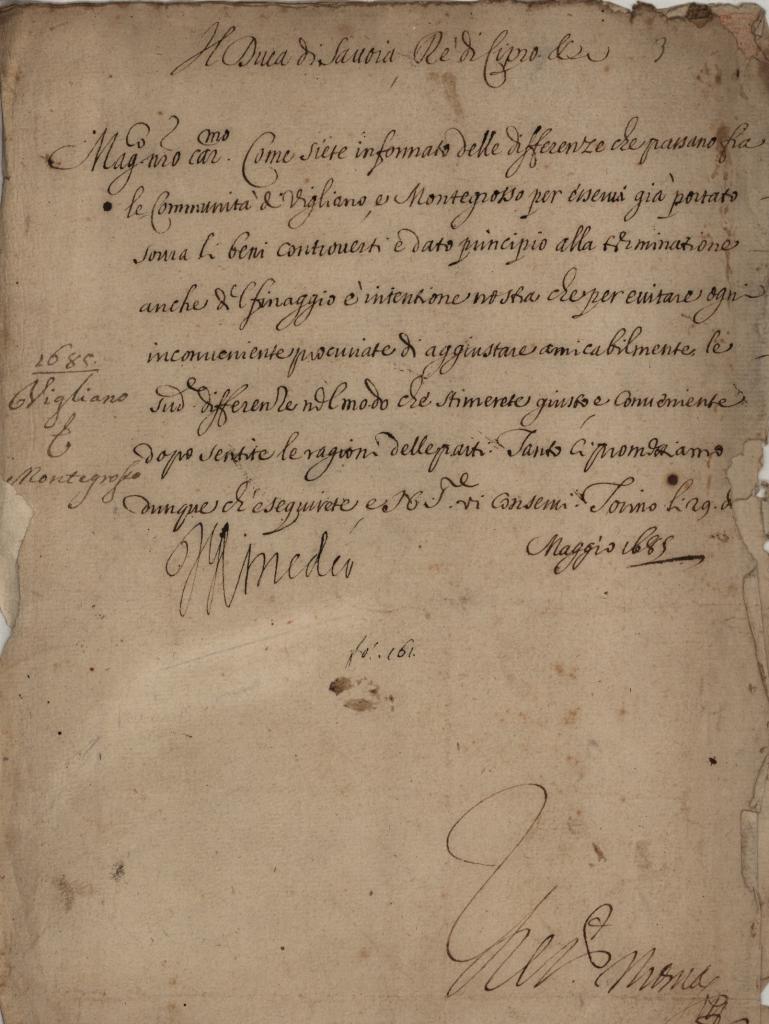 Il Duca di Savoia Re di Cipro &c 3
Mag.co n.ro car.mo Come siete informato delle differenze che passano fra
le Communità di Vigliano, e Montegrosso per esservi già portato
sovra li beni controversi e dato principio alla terminatione
anche del finaggio è intentione nostra che per evitare ogni
inconveniente procuriate di aggiustare amicabilmente le
sud.e differenze nel modo che stimerete giusto e conveniente
dopo sentite le ragioni delle parti. Tanto ci promettiamo
dunque ch'eseguirete e N. S.re vi conservi. Torino li 29. di
Maggio 1685
1685.
Vigliano
e
Montegrosso
V Amedeo
fo. 161.